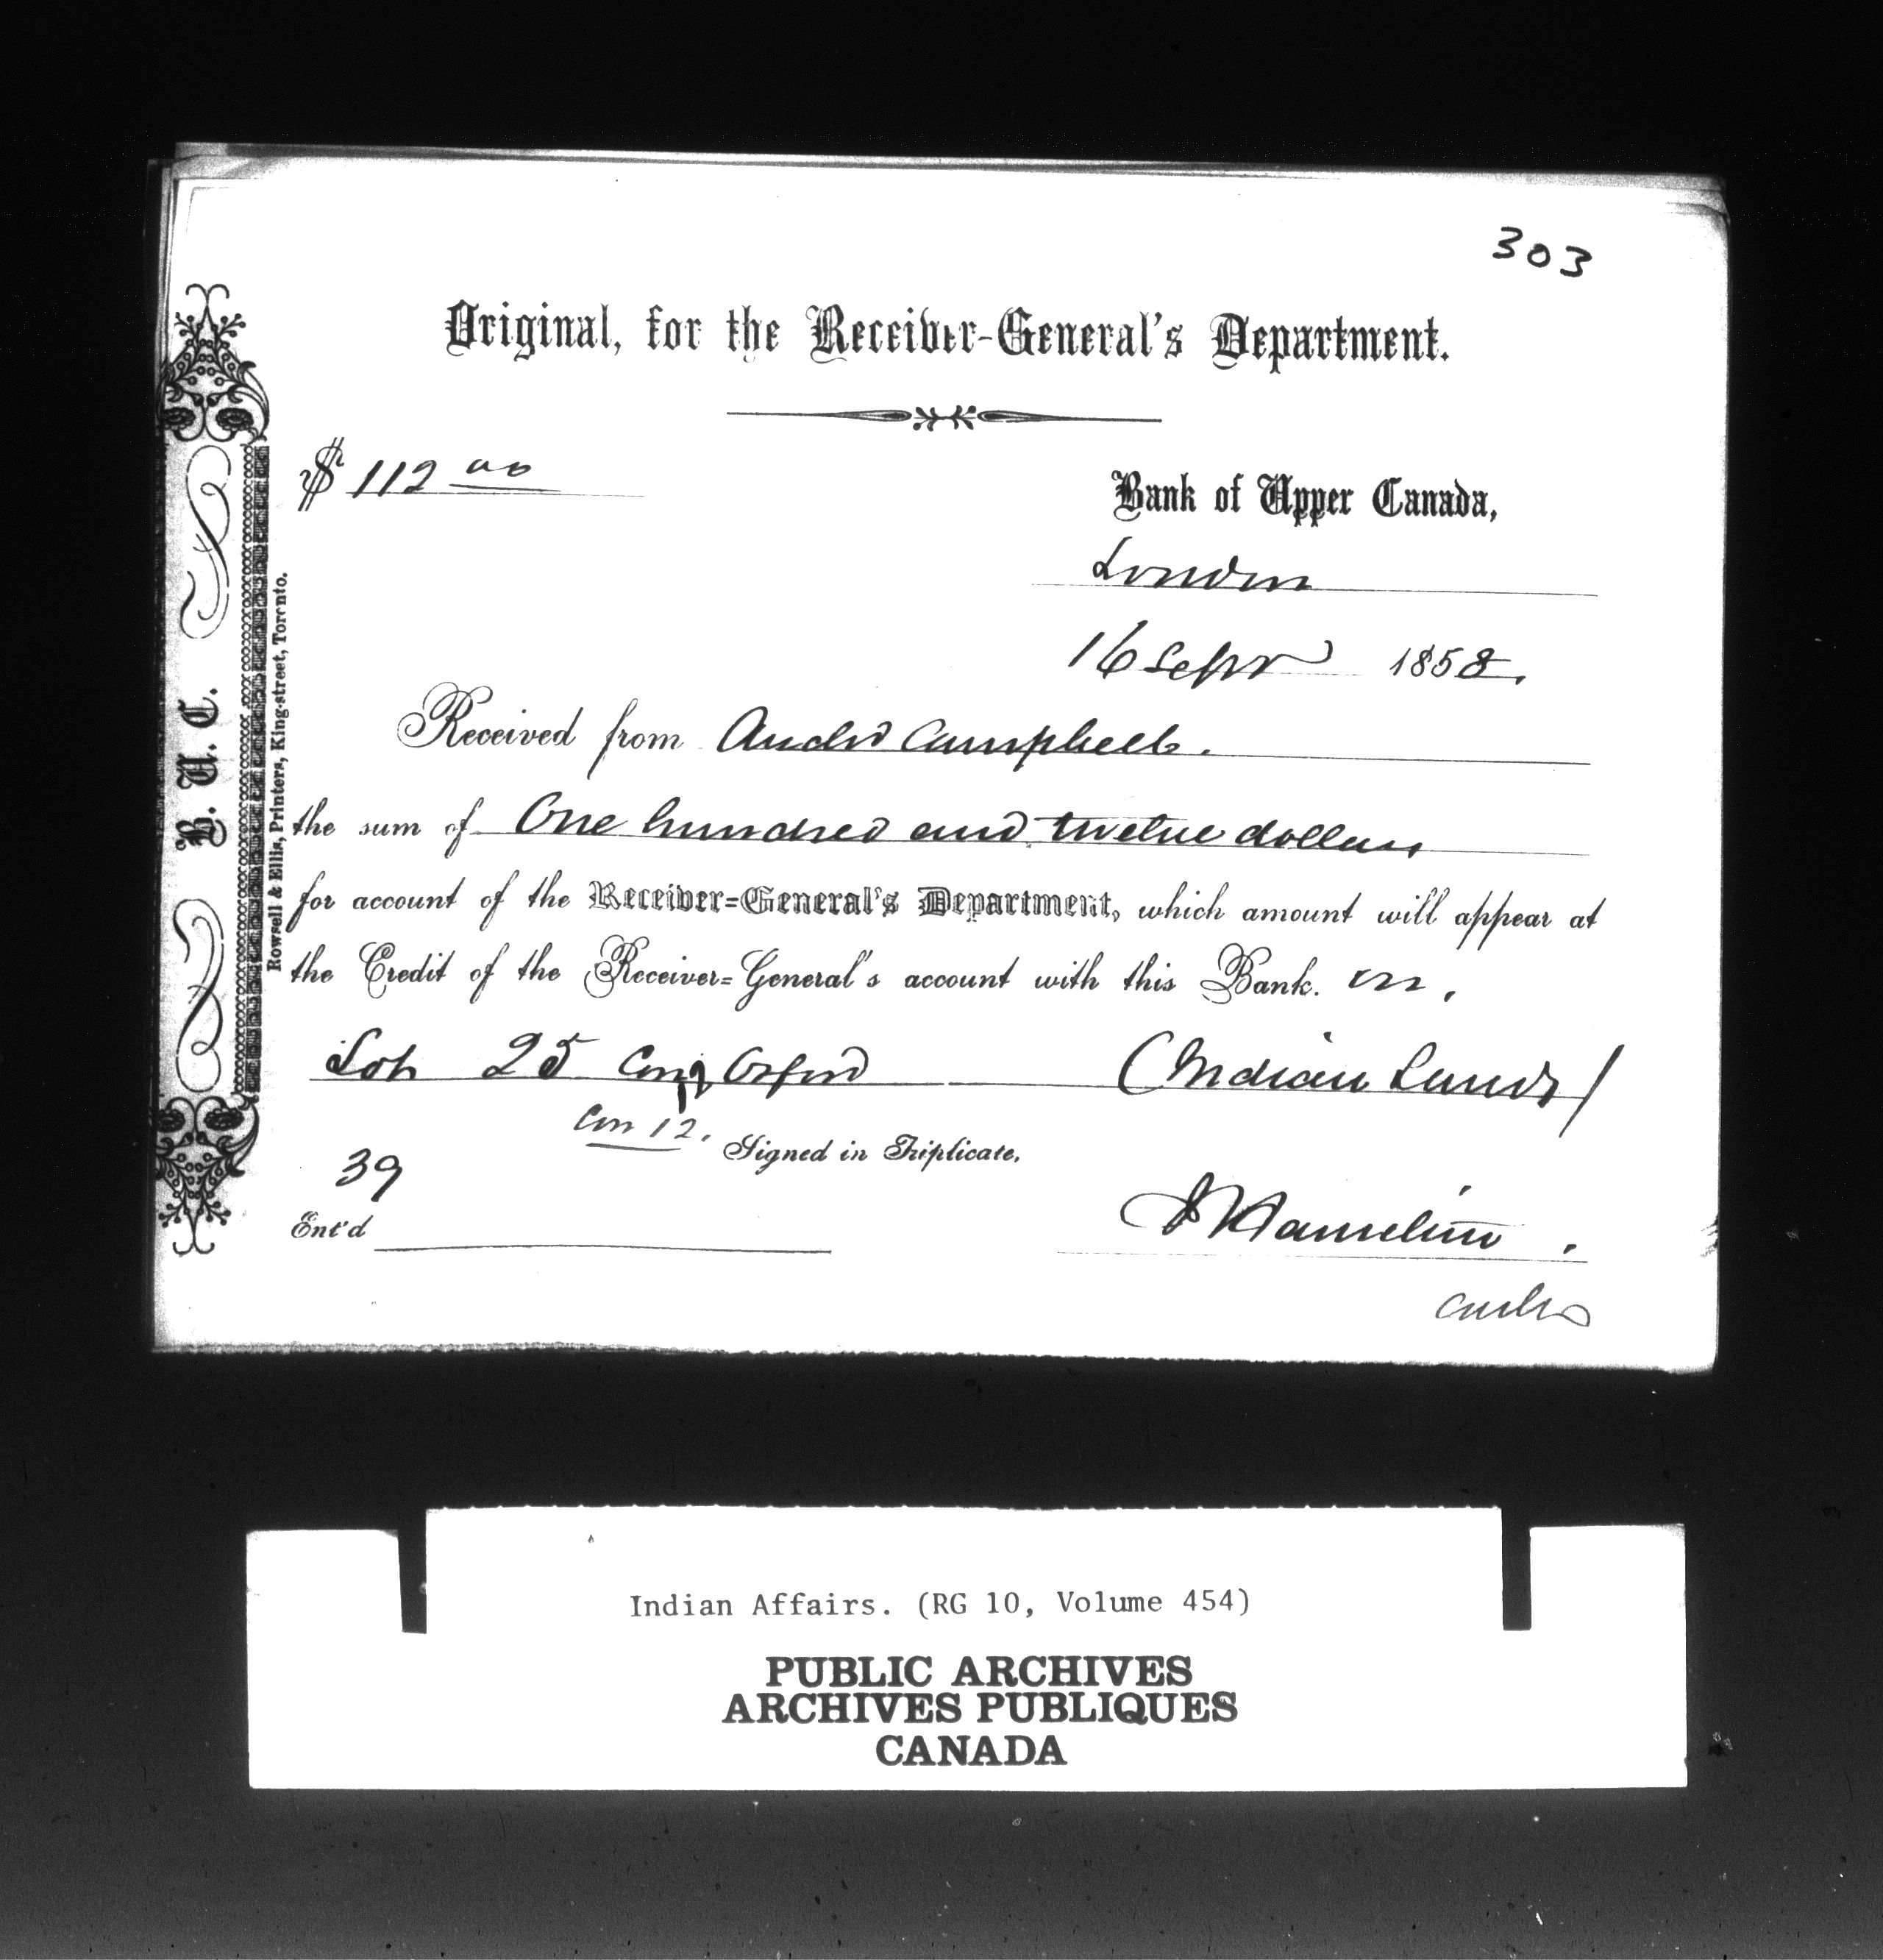 303
Original, for the Receiver-General's Department.
$ 112 00
Bank of Upper Canada,
London
16 Sepr 1858.
Received from Andw Campbell.
the sum of One hundred and twelve dollars
for account of the Receiver=General's Department, which amount will appear at
the Credit of the Receiver=General's account with this Bank. on.
Lot 25 Orford (Indian Lands)
Con 12.
Signed in Triplicate.
39
Ent'd
B. U. C.
Rowsell & Ellis, Printers, King-street, Toronto.
Indian Affairs. (RG 10, Volume 454)
PUBLIC ARCHIVES
ARCHIVES PUBLIQUES
CANADA